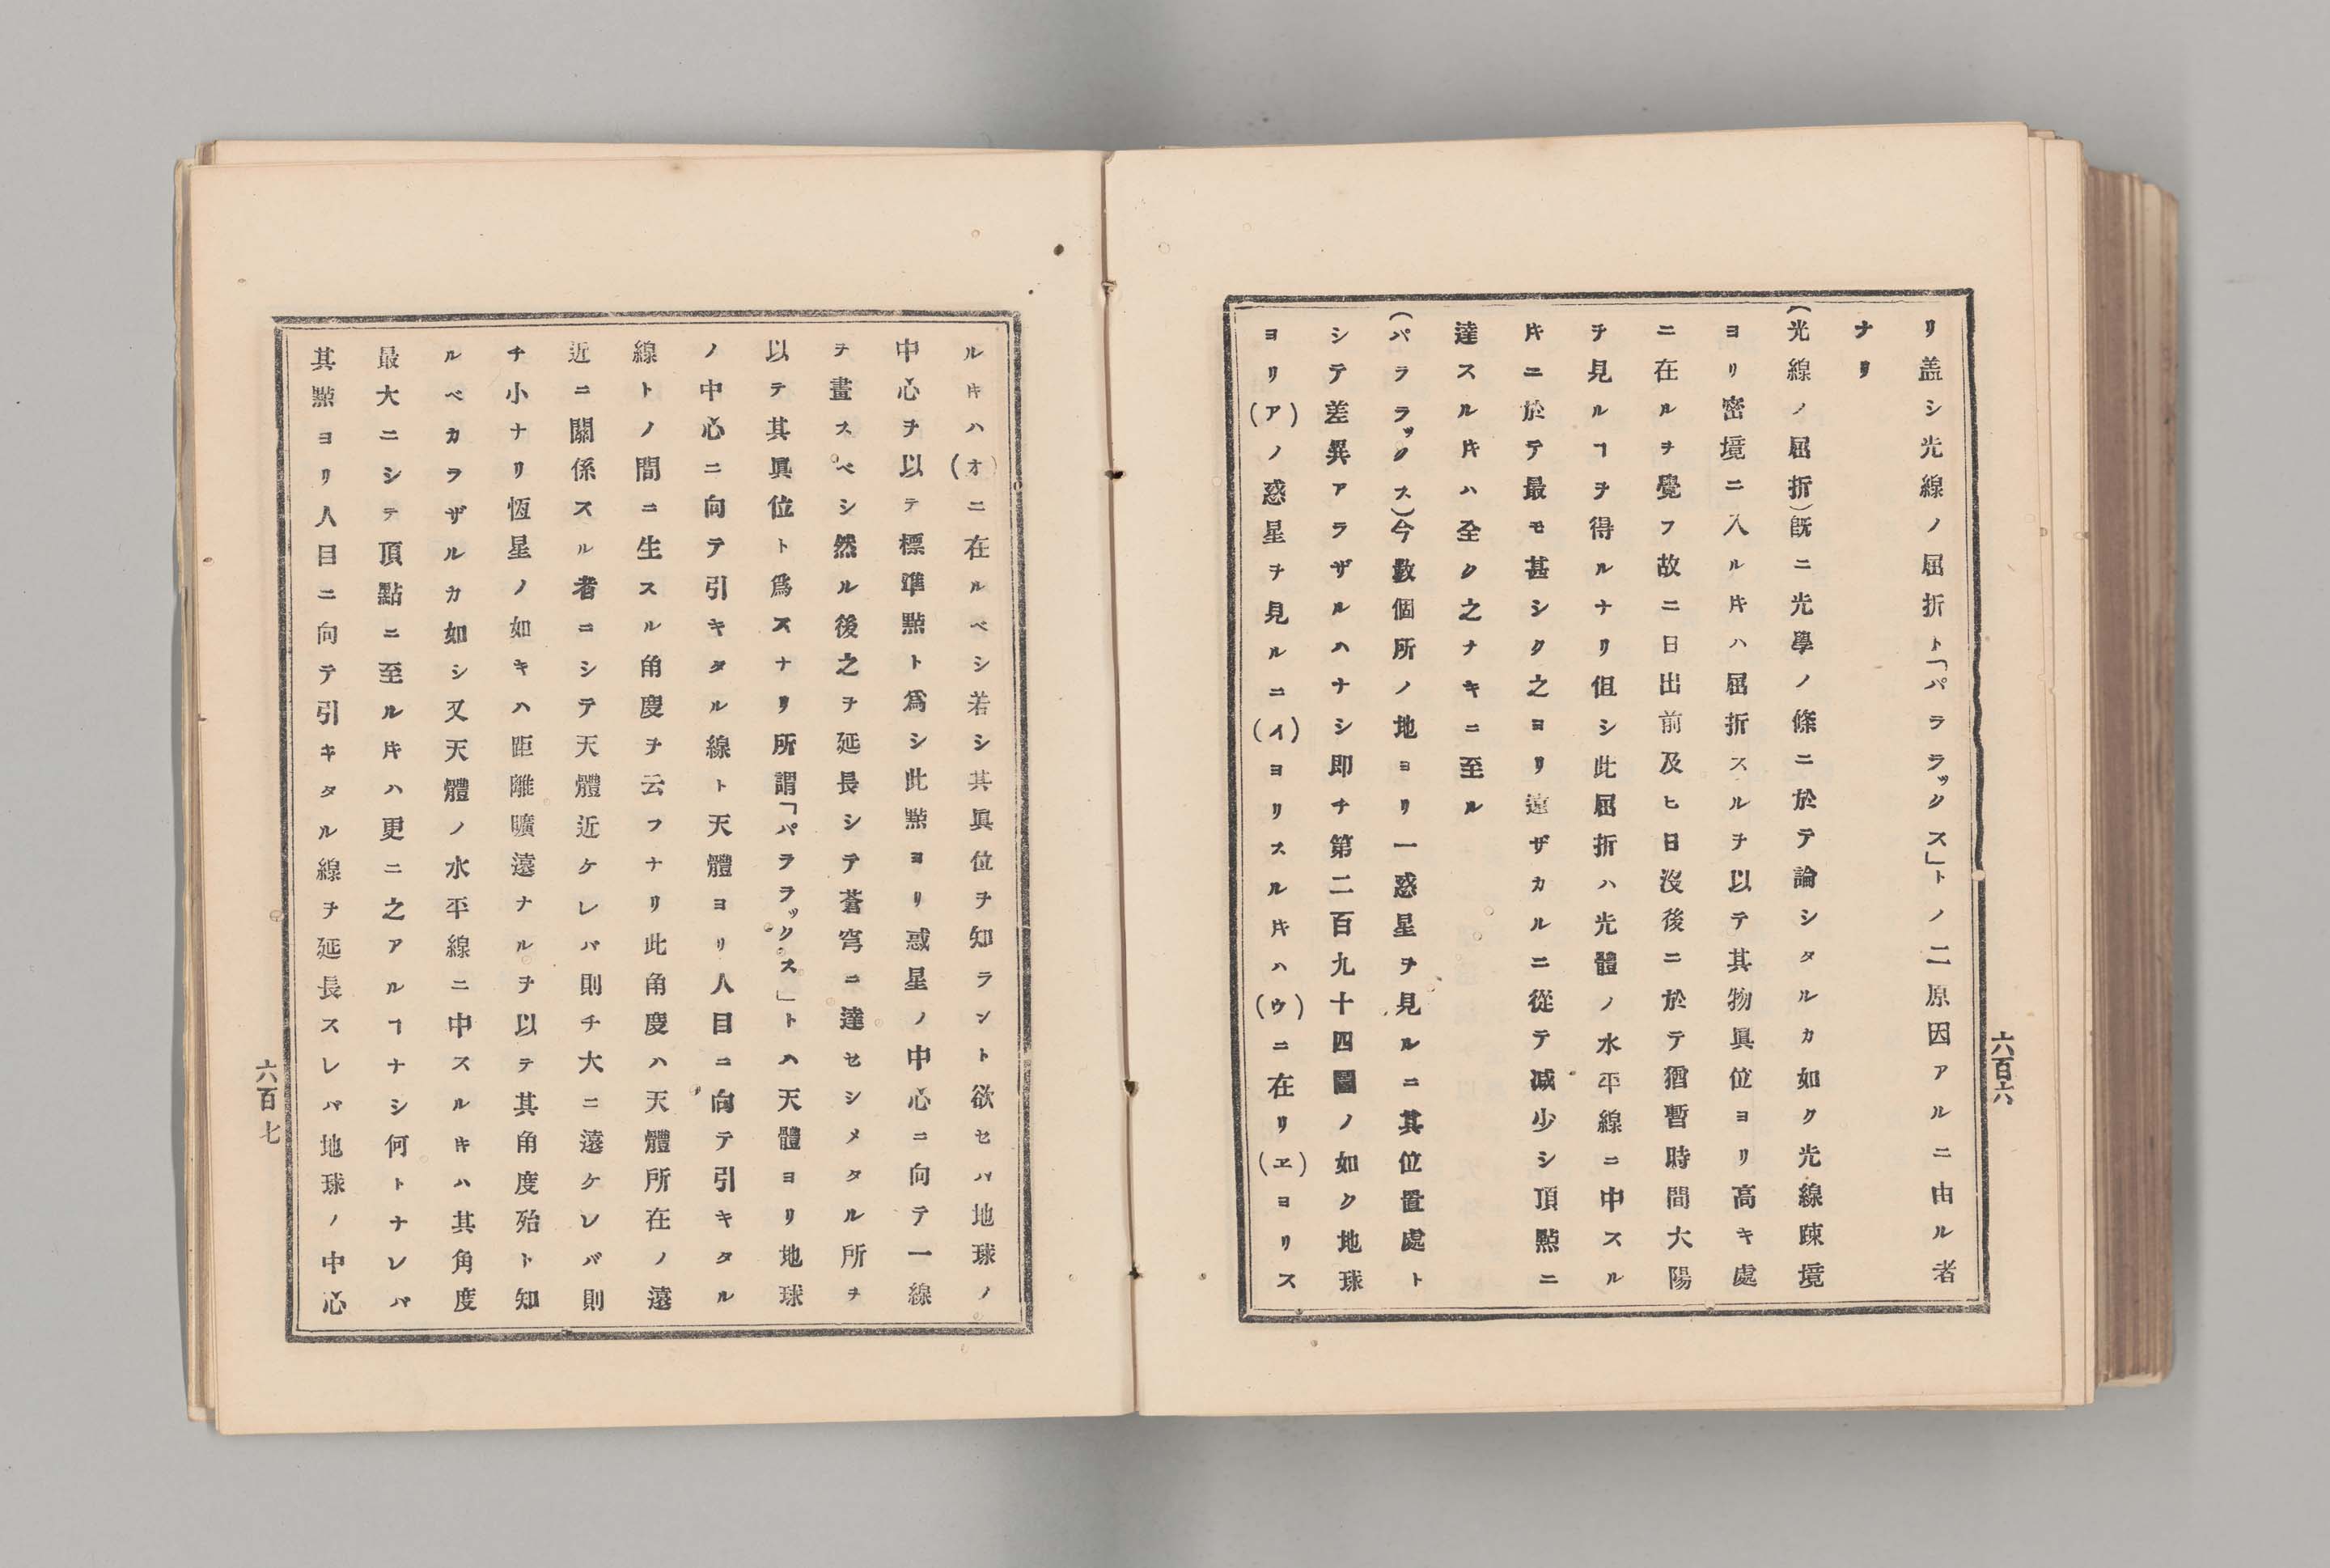 リ盖シ光線ノ屈折ト「パララックス」トノ二原因アルニ由ル者
ナリ
(光線ノ屈折)旣ニ光學ノ條ニ於テ論シタルカ如ク光線踈境
ヨリ密境ニ入ル𪜈ハ屈折スルヲ以テ其物眞位ヨリ高キ處
ニ在ルヲ覺フ故ニ日出前及ヒ日沒後ニ於テ猶暫時間大陽
ヲ見ルヿヲ得ルナリ但シ此屈折ハ光體ノ水平線ニ中スル
𪜈ニ於テ最モ甚シク之ヨリ遠ザカルニ從テ减少シ頂㸃ニ
達スル𪜈ハ全ク之ナキニ至ル
(パララックス)今數個所ノ地ヨリ一惑星ヲ見ルニ其位置處ト
シテ差異アラザルハナシ即チ第二百九十四圖ノ如ク地球
ヨリ(ア)ノ惑星ヲ見ルニ(イ)ヨリスル𪜈ハ(ウ)ニ在リ(ヱ)ヨリス
六百六
ル𪜈ハ(オ)ニ在ルベシ若シ其眞位ヲ知ラント欲セバ地球ノ
中心ヲ以テ標準㸃ト爲シ此㸃ヨリ惑星ノ中心ニ向テ一線
ヲ畫スベシ然ル後之ヲ延長シテ蒼穹ニ達セシメタル所ヲ
以テ其眞位ト爲スナリ所謂「パララックス」トハ天體ヨリ地球
ノ中心ニ向テ引キタル線ト天體ヨリ人目ニ向テ引キタル
線トノ間ニ生スル角度ヲ云フナリ此角度ハ天體所在ノ遠
近ニ關係スル者ニシテ天體近ケレバ則チ大ニ遠ケレバ則
チ小ナリ恆星ノ如キハ距離曠遠ナルヲ以テ其角度殆ト知
ルベカラザルカ如シ又天體ノ水平線ニ中スルキハ其角度
最大ニシテ頂點ニ至ル𪜈ハ更ニ之アルヿナシ何トナレバ
其點ヨリ人目ニ向テ引キタル線ヲ延長スレバ地球ノ中心
六百七